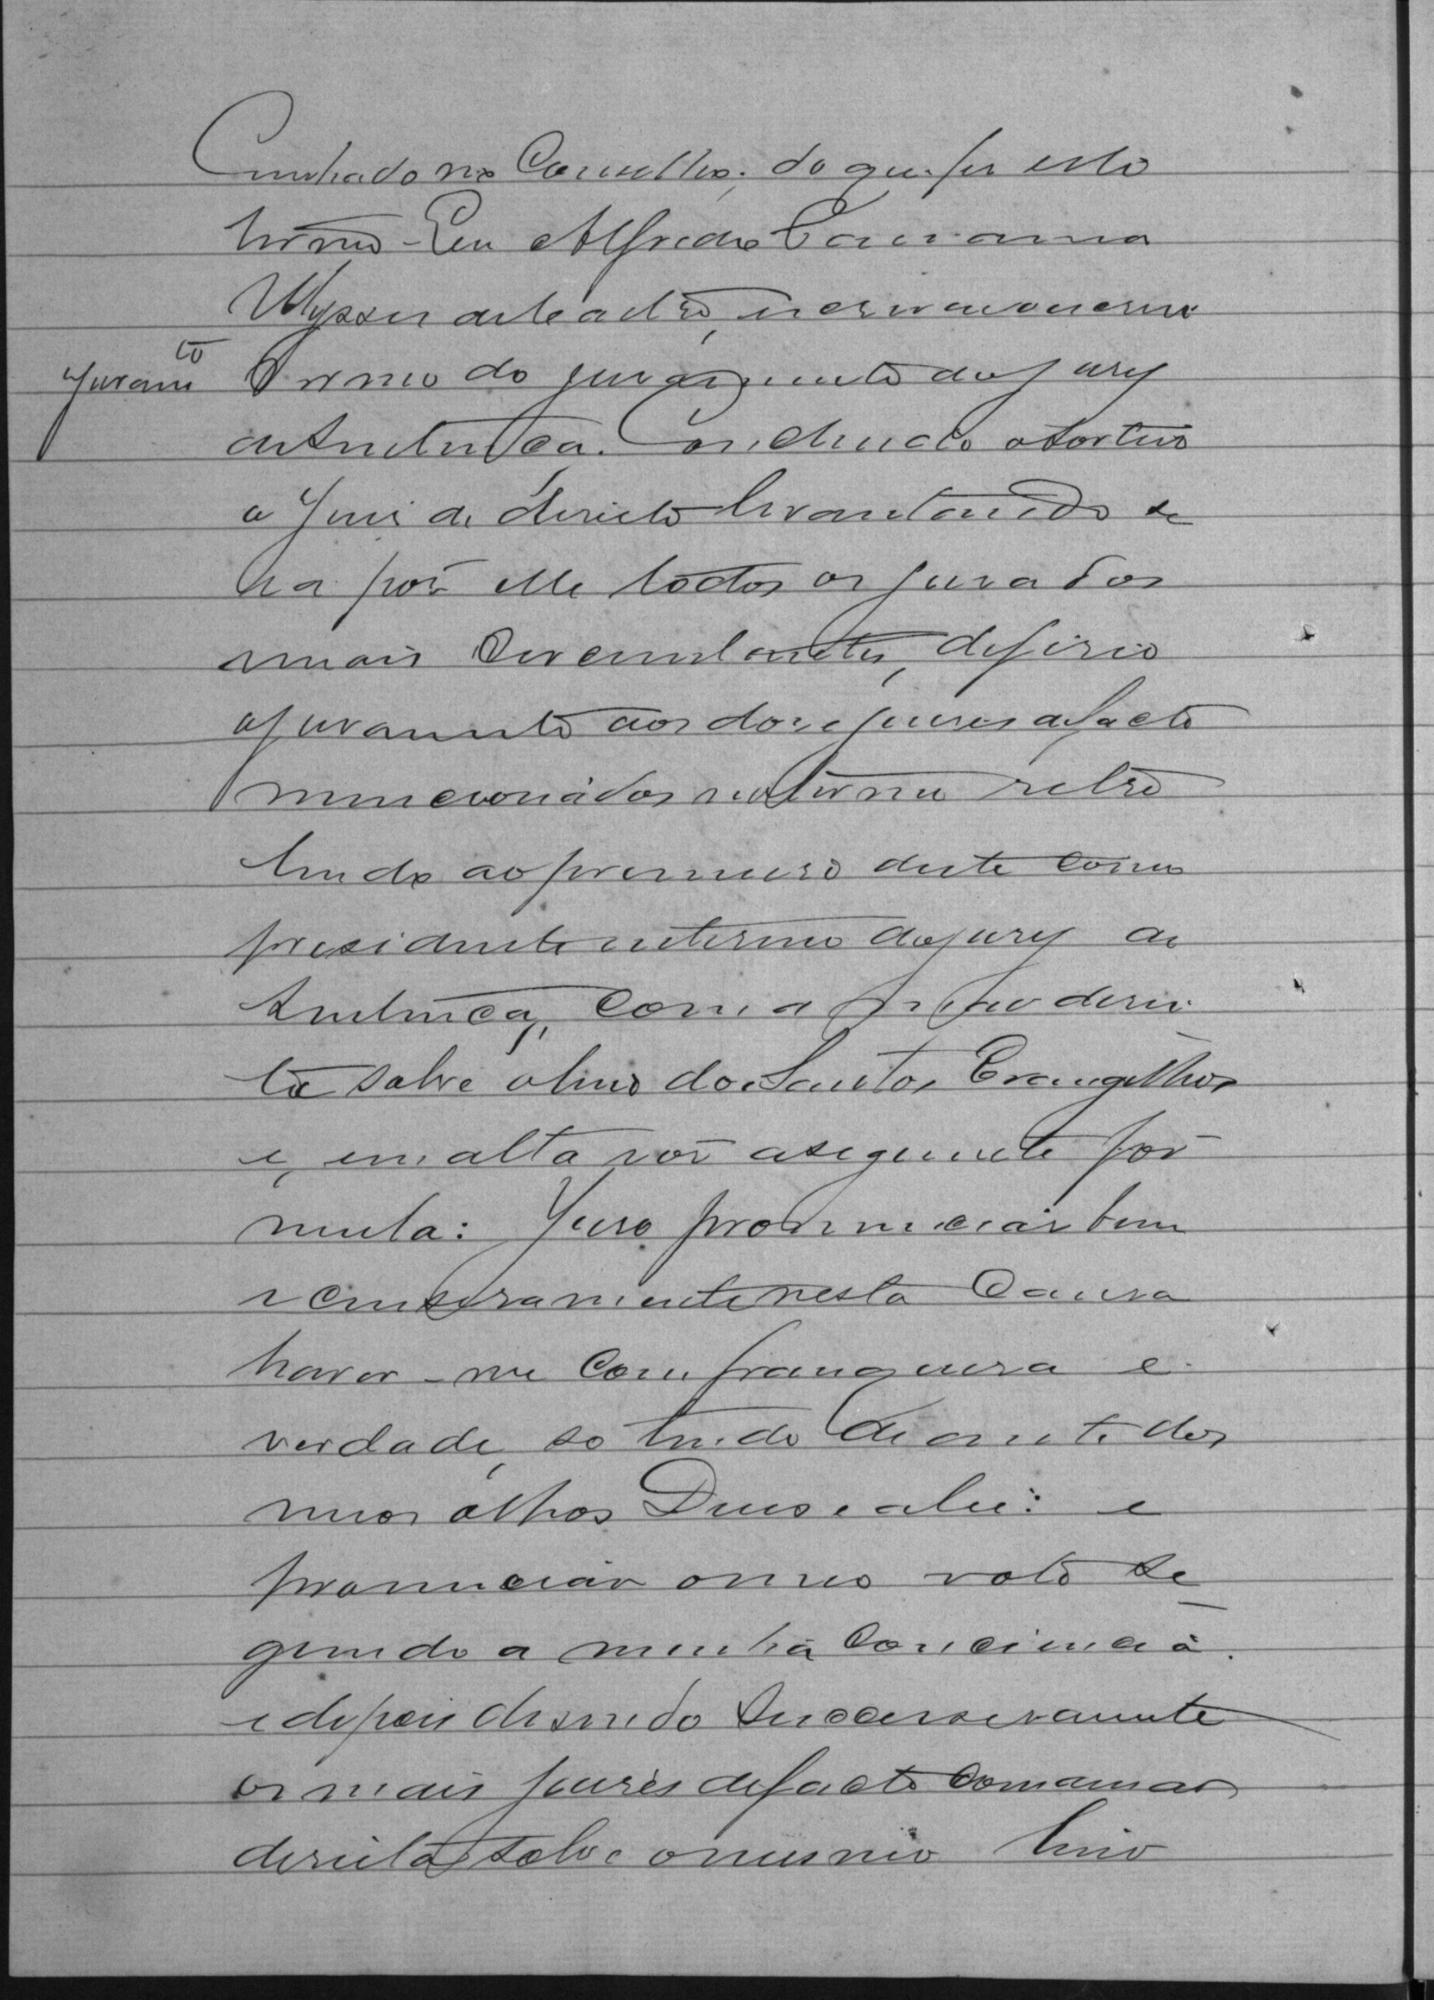 Cunhado no Conselho; do que fiz este
termo. Eu Alfredo
Ulysses de Castro, escrivão escrevi.
Juramto
Termo do juramento do jury
de sentença. Concluido o sorteio
o Juiz de direito levantando se
na por elle todos os jurados
mais circunstantes, deferio
o juramento aos doze juises de facto
mencionados no termo retro
lendo ao primeiro deste como
presidente interino do jury de
sentença, com a mão direi
ta sobre o livro dos Santos Evangelhos
e, em alta vóz a seguinte fór
mula: Juro pronunciar bem
e sinceramente nesta Causa
haver-me com franqueza e
verdade, só tendo diante dos
meus olhos Deus e a lei: e
pronunciar o meu voto se
gundo a minha conciencia.
e depois disendo successivamente
os mais juises de facto com a mão
direita sobre o mesmo livro